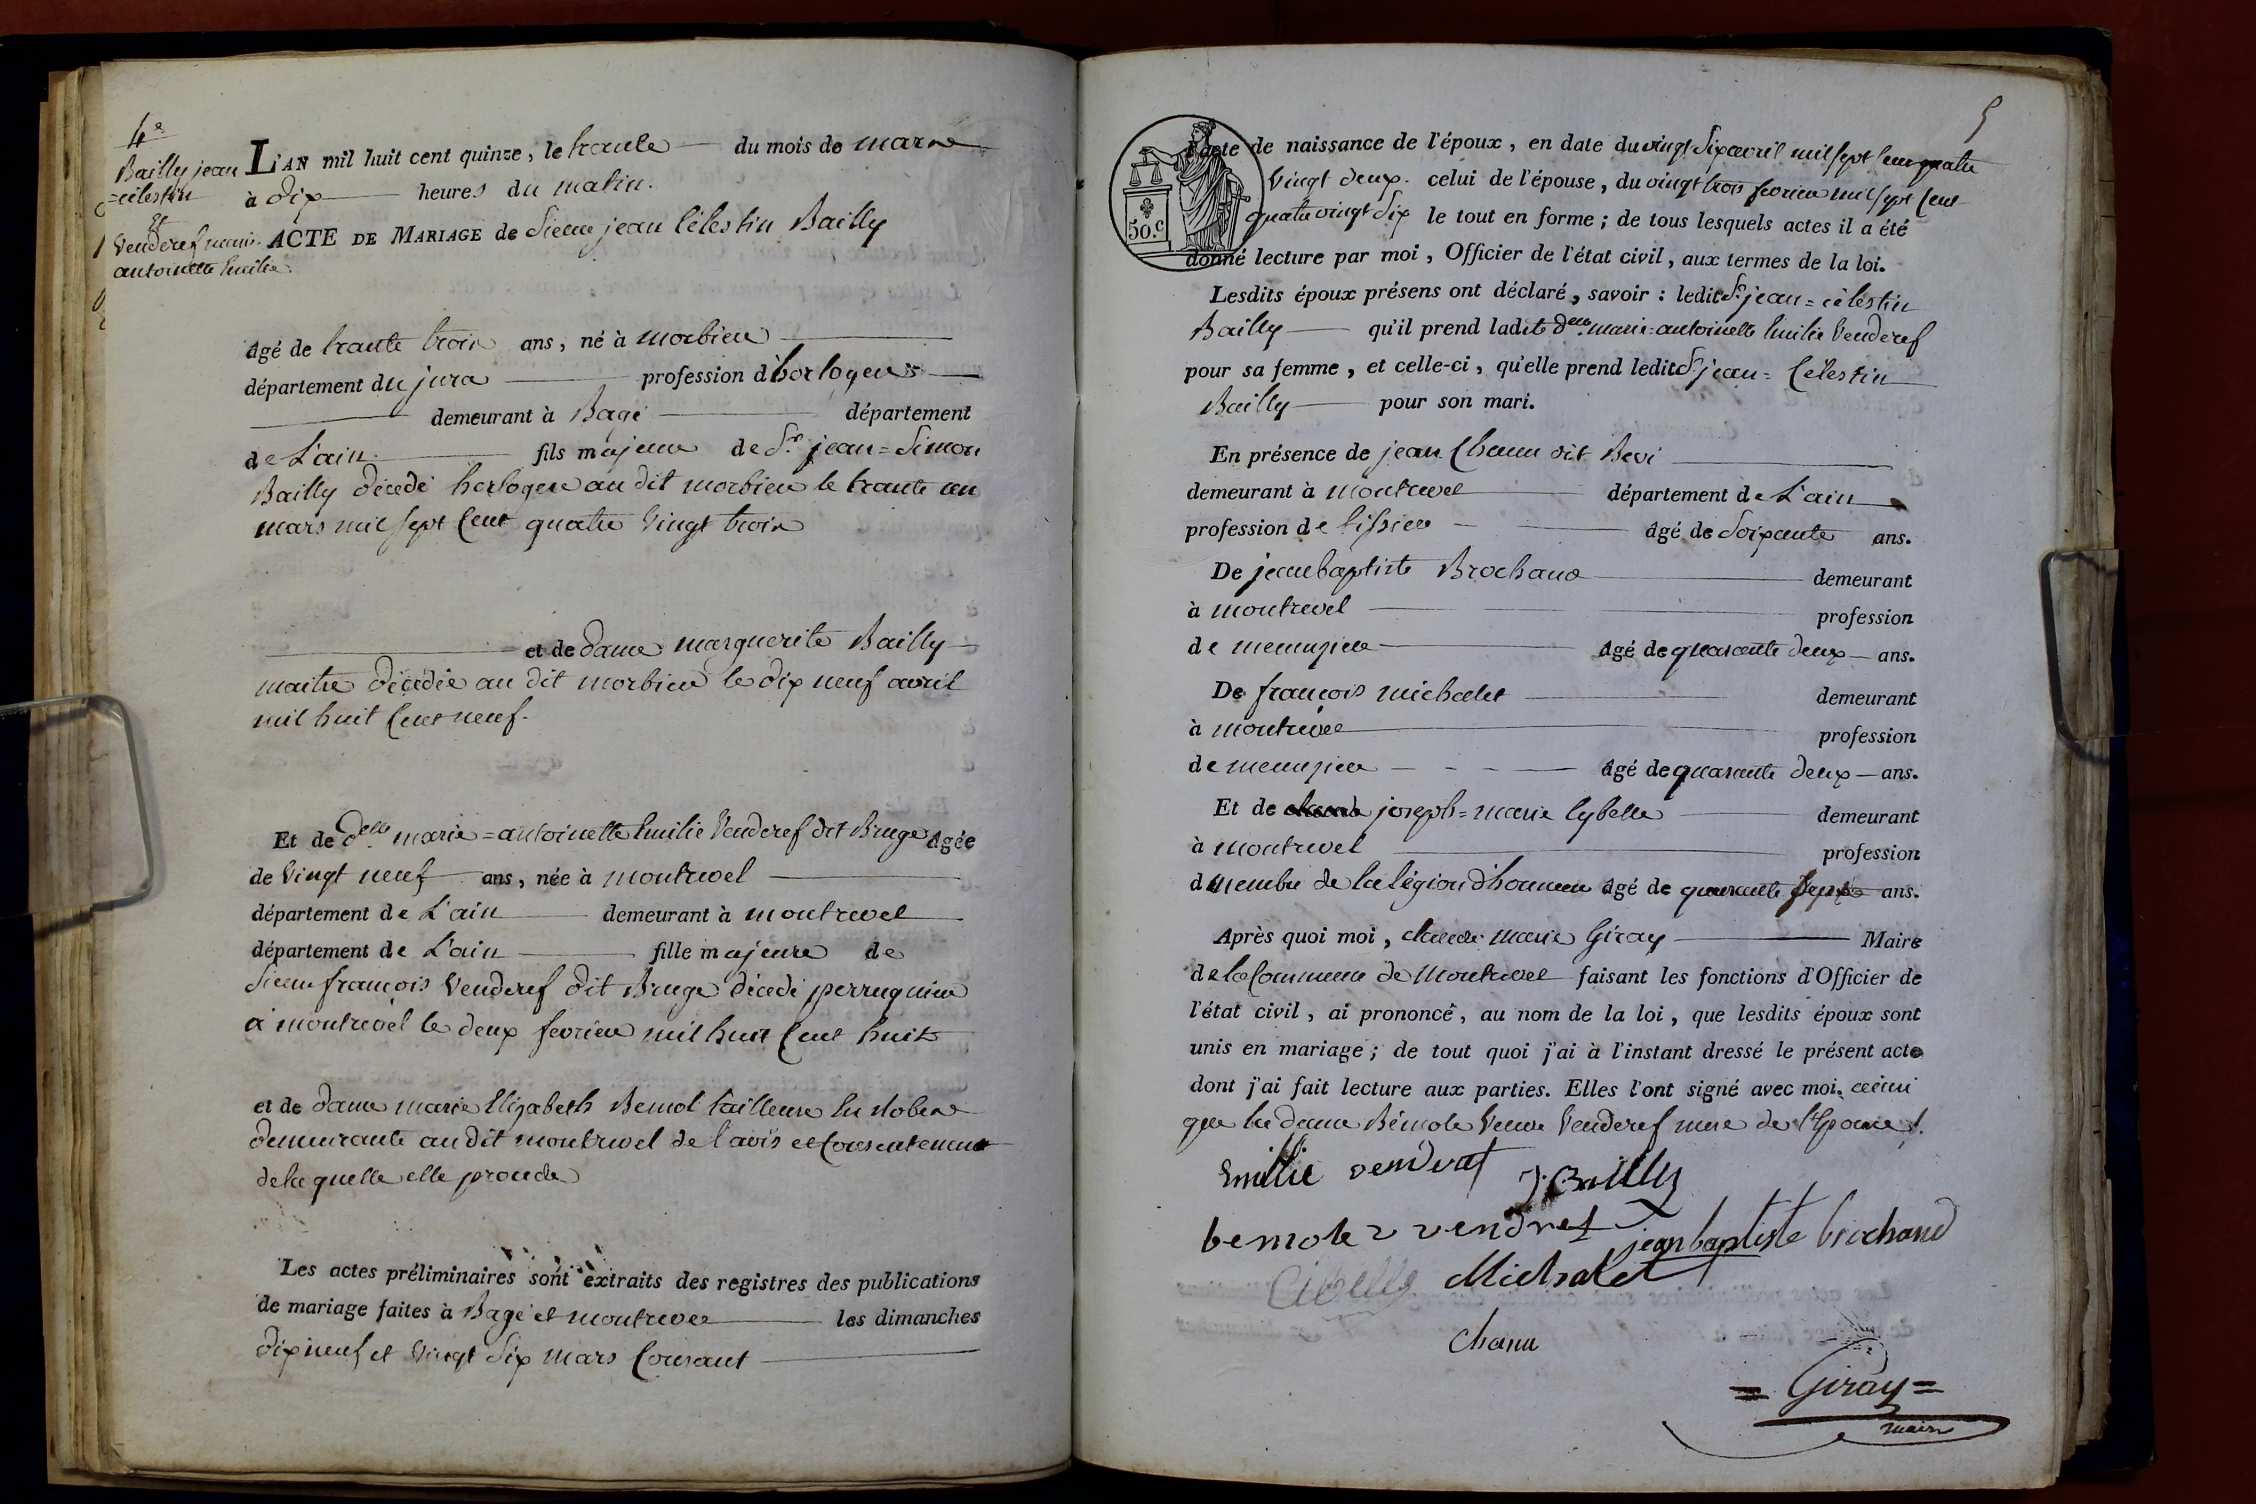 4e
Bailly jean
=célestin
Et
Venderef marie
antoinette Emilie
L'AN mil huit cent quinze, le trante du mois de mars
à dix heures du matin.
ACTE DE MARIAGE de Sieur jean Célestin Bailly
âgé de trante trois ans, né à morbier
département du jura profession d'horloger
demeurant à Bagé département
de L'ain fils majeur de Sr. jean=Simon
Bailly décédé horloger au dit morbier le trante un
mars mil sept Cent quatre Vingt trois
et de Dame marguerite Bailly
maitre décédée au dit morbier le dix neuf avril
mil huit Cent neuf.
Et de delle marie=antoinette Emilie Venderef dit Bruge âgée
de Vingt neuf ans, née à montrevel
département de L'ain demeurant à montrevel
département de L'ain fille majeure de
Sieur françois Venderef dit Bruge décédé perruquier
à montrevel le deux fevrier mil huit Cent huit
et de Dame marie Elizabeth Bemol tailleuse en Robes
demeurante au dit montrevel de l'avis et Consentement
de laquelle elle procede
Les actes préliminaires sont extraits des registres des publications
de mariage faites à Bagé et montrevel les dimanches
dix neuf et Vingt Six mars Courant
5
50.c
acte de naissance de l'époux, en date du vingt Six avril mil sept Cent quatre
Vingt deux. celui de l'épouse, du vingt trois fevrier mil sept Cent
quatre vingt Six le tout en forme; de tous lesquels actes il a été
donné lecture par moi, Officier de l'état civil, aux termes de la loi.
Lesdits époux présens ont déclaré, savoir : ledit Sr. jean=célestin
Bailly qu'il prend ladite delle. marie=antoinette Emilie Venderef
pour sa femme, et celle-ci, qu'elle prend ledit Sr jean=Célestin
Bailly pour son mari.
En présence de jean Chanu dit Bevi
demeurant à montrevel département de L'ain
profession de tissier âgé de Soixante ans.
De jean baptiste Brochand demeurant
à montrevel profession
de menuzier âgé de quarante deux ans.
De françois michalet demeurant
à montrevel profession
de menuzier âgé de quarante deux ans.
Et de joseph=marie Cybelle demeurant
à montrevel profession
de membre de la légion d'honneur âgé de quarante ans.
Après quoi moi, claude marie Giray Maire
de la Commune de Montrevel faisant les fonctions d'Officier de
l'état civil, ai prononcé, au nom de la loi, que lesdits époux sont
unis en mariage; de tout quoi j'ai à l'instant dressé le présent acte
dont j'ai fait lecture aux parties. Elles l'ont signé avec moi, ainsi
que la dame Bémole Veuve Venderef mere de l'Epouse.
Emilie vendref
J. Bailly
bemole v vendref
jean baptiste brochand
Cibelle
Michalet
Chanu
=Giray=
maire